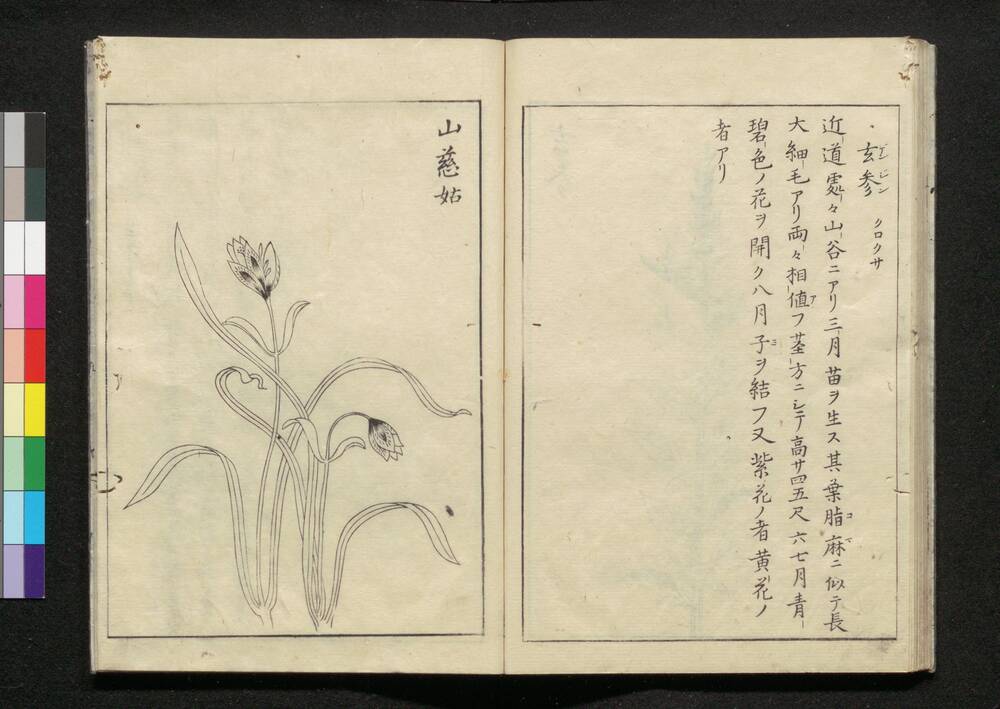 玄参 ゲンジン クロクサ
近道處々山谷ニアリ三月苗ヲ生ス其葉脂麻ニ似テ長
大細毛アリ両々相値フ茎方ニシテ高サ四五尺六七月青
碧色ノ花ヲ開ク八月子ヲ結フ又紫花ノ者黄花ノ
者アリ
山慈姑